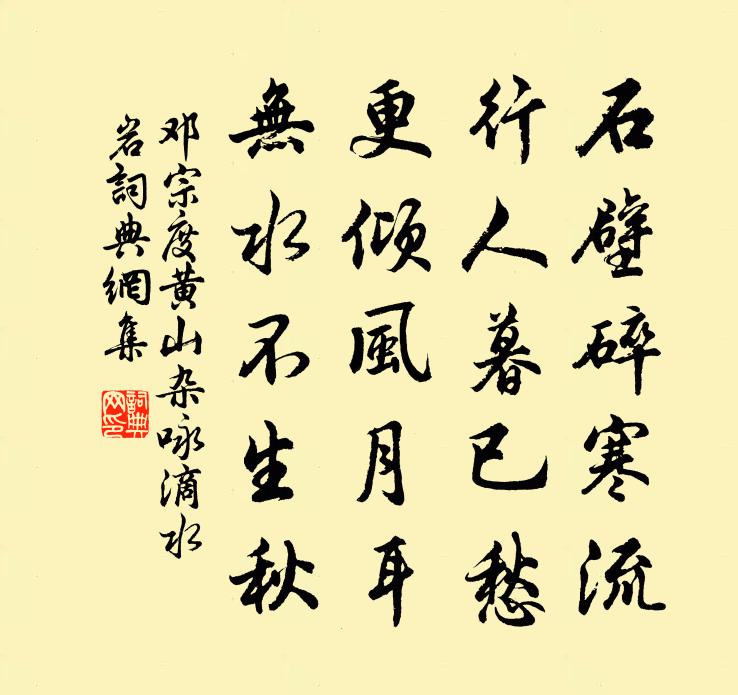 石壁碎寒流
行人暮已愁
更傾風月耳
無水不生秋
邓宗度黄山杂咏滴水
岩詞典網集
詞典
网印